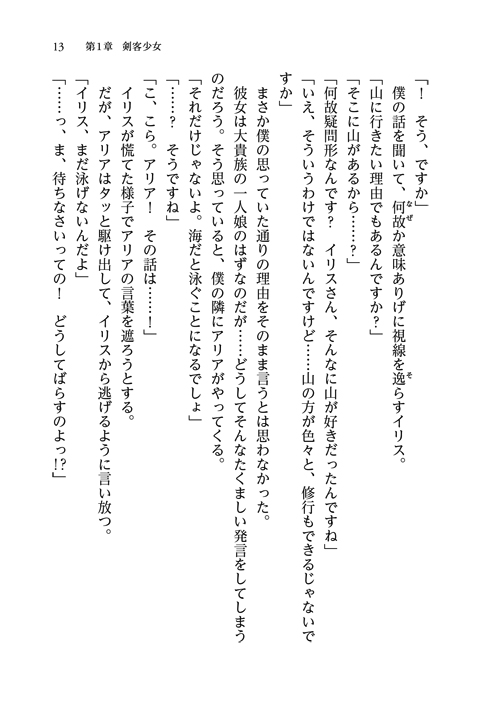 13　第1章　剣客少女
「！　そう、ですか」
　僕の話を聞いて、何故か意味ありげに視線を逸らすイリス。
「山に行きたい理由でもあるんですか？」
「そこに山があるから……？」
「何故疑問形なんです？　イリスさん、そんなに山が好きだったんですね」
「いえ、そういうわけではないんですけど……山の方が色々と、修行もできるじゃないで
すか」
　まさか僕の思っていた通りの理由をそのまま言うとは思わなかった。
　彼女は大貴族の一人娘のはずなのだが……どうしてそんなたくましい発言をしてしまう
のだろう。そう思っていると、僕の隣にアリアがやってくる。
「それだけじゃないよ。海だと泳ぐことになるでしょ」
「……？　そうですね」
「こ、こら。アリア！　その話は……！」
　イリスが慌てた様子でアリアの言葉を遮ろうとする。
　だが、アリアはタッと駆け出して、イリスから逃げるように言い放つ。
「イリス、まだ泳げないんだよ」
「……っ、ま、待ちなさいっての！　どうしてばらすのよっ!?」